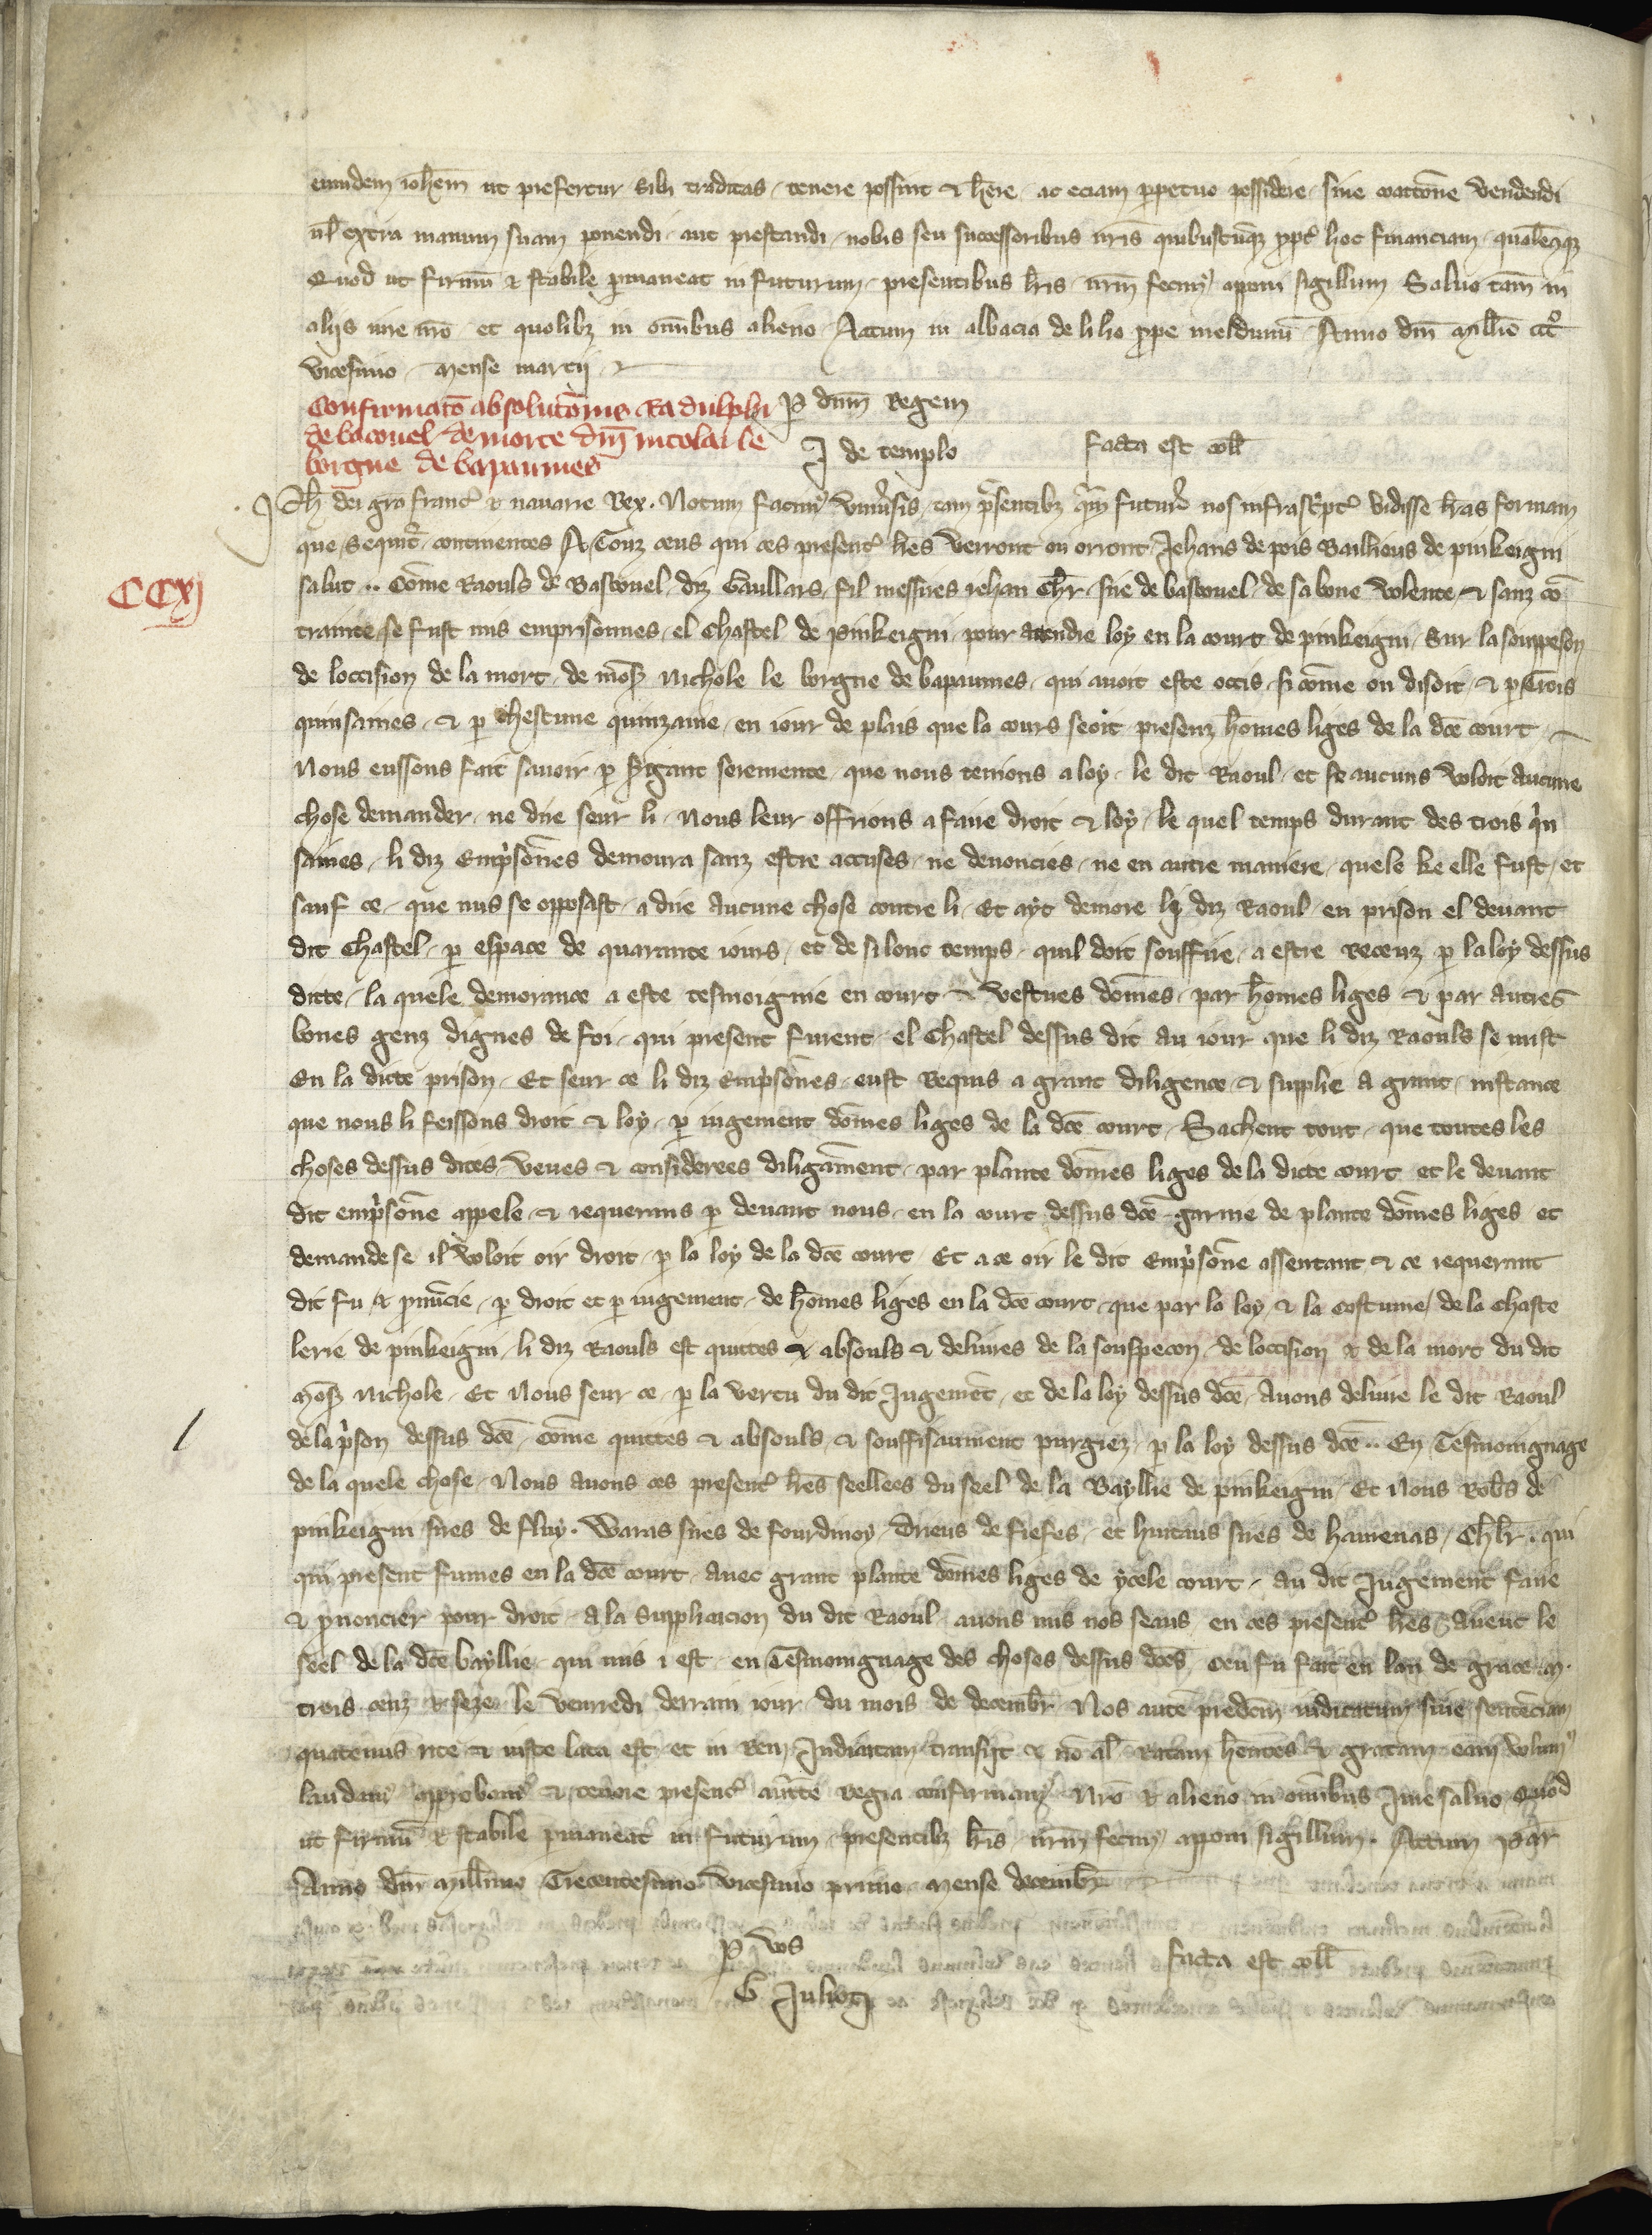 eumdem ioh̃em ut prefertur sibi traditas tenere possint ⁊ h̃ere ac eciam ꝑpetuo possidere sine coactõne vendendi
ul̃ extra manum suam ponendi aut prestandi nobis seu successoribus nr̃is quibuscũqꝫ ꝓpt̃ hoc financiam qualẽcũqꝫ
Quod ut firmũ ⁊ stabile ꝑmaneat in futurum presentibus lr̃is nr̃m fecimꝰ apponi sigillum Saluo tam̃ in
alijs iure nr̃o et quolibꝫ in om̃ibus alieno Actum in abbacia de lilio ꝓpe meldunũ Anno dñi mill̃io ccc̊
vicesimo mense marcij
Confirmatõ absolutõnis Radulphi
de bacouel de morte dñi nicolai le
borgne de bapaumes
ꝑ dñm Regem
J de templo
facta est coll̃
CCxj
Ph̃ dei gr̃a franc̃ ⁊ nauarre Rex. Notum facimꝰ vniũsis tam p̃sentibꝫ q̃m futur̃ nos infrasc̃ptas vidisse lr̃as formam
que sequit̃ continentes A Touz ceus qui ces present̃ lr̃es verront ou orront Jehans de pois Baillieus de pinkeigni
salut .. Com̃e Raouls de Bascouel diz Gaullars fil messires iehan chr̃ sire de bascouel de sa bone volente ⁊ sanz cõ
trainte se fust mis emprisonnes el chastel de pinkeigni pour atendre loy en la court de pinkeigni sur la souppeson
de loccision de la mort de mõs̃ Nichole le borgne de bapaumes qui auoit este occis si com̃e on disoit ⁊ ꝑ trois
quinsaines ⁊ ꝑ chescune quinzaine en iour de plais que la cours seoit presenz hom̃es liges de la dc̃e court
Nous eussons fait sauoir ꝑ sergant seremente que nous tenions a loy le dit Raoul et se aucuns voloit aucune
chose demander ne dire seur li nous leur offrions a faire droit ⁊ loy le quel temps durant des trois q̃in
saines li diz Emp̃sonnes demoura sanz estre accuses ne denoncies ne en autre maniere quele ke elle fust et
sauf ce que nus se opposast a dire aucune chose contre li Et ayt demore li diz Raoul en prison el deuant
dit chastel ꝑ espace de quarante iours et de si lonc temps quil doit souffire a estre receuz ꝑ la loy dessus
dicte la quele demorance a este tesmoignie en court ⁊ vestues dom̃es par hom̃es liges ⁊ par autres
bones genz dignes de foi qui present furent el chastel dessus dit au iour que li diz Raouls se mist
En la dicte prison Et seur ce li diz Emp̃sonnes eust Requis a grant diligence ⁊ supplie a grant instance
que nous li feissons droit ⁊ loy ꝑ iugement dom̃es liges de la dc̃e court Sachent tout que toutes les
choses dessus dites veues ⁊ considerees diligam̃ent par plante dom̃es liges de la dicte court et le deuant
dit emp̃sone appele ⁊ requerans ꝑ deuant nous en la court dessus dc̃e garnie de plante dom̃es liges et
demande se il voloit oir droit ꝑ la loy de la dc̃e court Et a ce oir le dit Emp̃sone assentant ⁊ ce requerant
dit fu ⁊ ꝓnũcie ꝑ droit et ꝑ iugement de hom̃es liges en la dc̃e court que par la loy ⁊ la costume de la chaste
lerie de pinkeigni li diz Raouls est quittes ⁊ absouls ⁊ deliures de la souspecon de loccision ⁊ de la mort du dit
mõs̃ Nichole Et Nous seur ce ꝑ la vertu du dit Jugemẽt et de la loy dessus dc̃e Auons deliure le dit Raoul
de la p̃son dessus dc̃e com̃e quittes ⁊ absouls ⁊ souffisaument purgiez ꝑ la loy dessus dc̃e .. En Tesmoingnage
de la quele chose Nous auons ces present̃ lr̃es seellees du seel de la Bayllie de pinkeigni Et Nous Rob̃s de
pinkeigni sires de fluy. Waras sires de fourdinoy Drieus de fiefes et huitaus sires de hamenas Chl̃r . qui
qui present fumes en la dc̃e court auec grant plante dom̃es liges de ycele court au dit Jugement faire
⁊ ꝓnoncier pour droit a la supplicacion du dit Raoul auons mis nos seaus en ces present̃ lr̃es auenc le
seel de la dc̃e bayllie qui mis i est en Tesmoingnage des choses dessus dc̃es Ceu fu fait en lan de grace .m.
trois cenz ⁊ seze le venredi derrain iour du mois de decembr̃ Nos autẽ predc̃m iudicatum siue sentẽciam
quatenus rite ⁊ iuste lata est et in Rem Judicatam transijt ⁊ nõ al̃ Ratam hẽntes ⁊ gratam eam volumꝰ
laudamꝰ approbamꝰ ⁊ tenore presenc̃ auc̃te Regia confirmamꝰ Nr̃o ⁊ alieno in om̃ibus Jure saluo Quod
ut firmũ ⁊ stabile ꝑmaneat in futurum presentibꝫ lr̃is nr̃m fecimꝰ apponi sigillum. Actum par̃
Anno dñi mill̃imo Trecentesimo vicesimo primo mense decembr̃
ꝑ vos
G Juliot̃
facta est coll̃